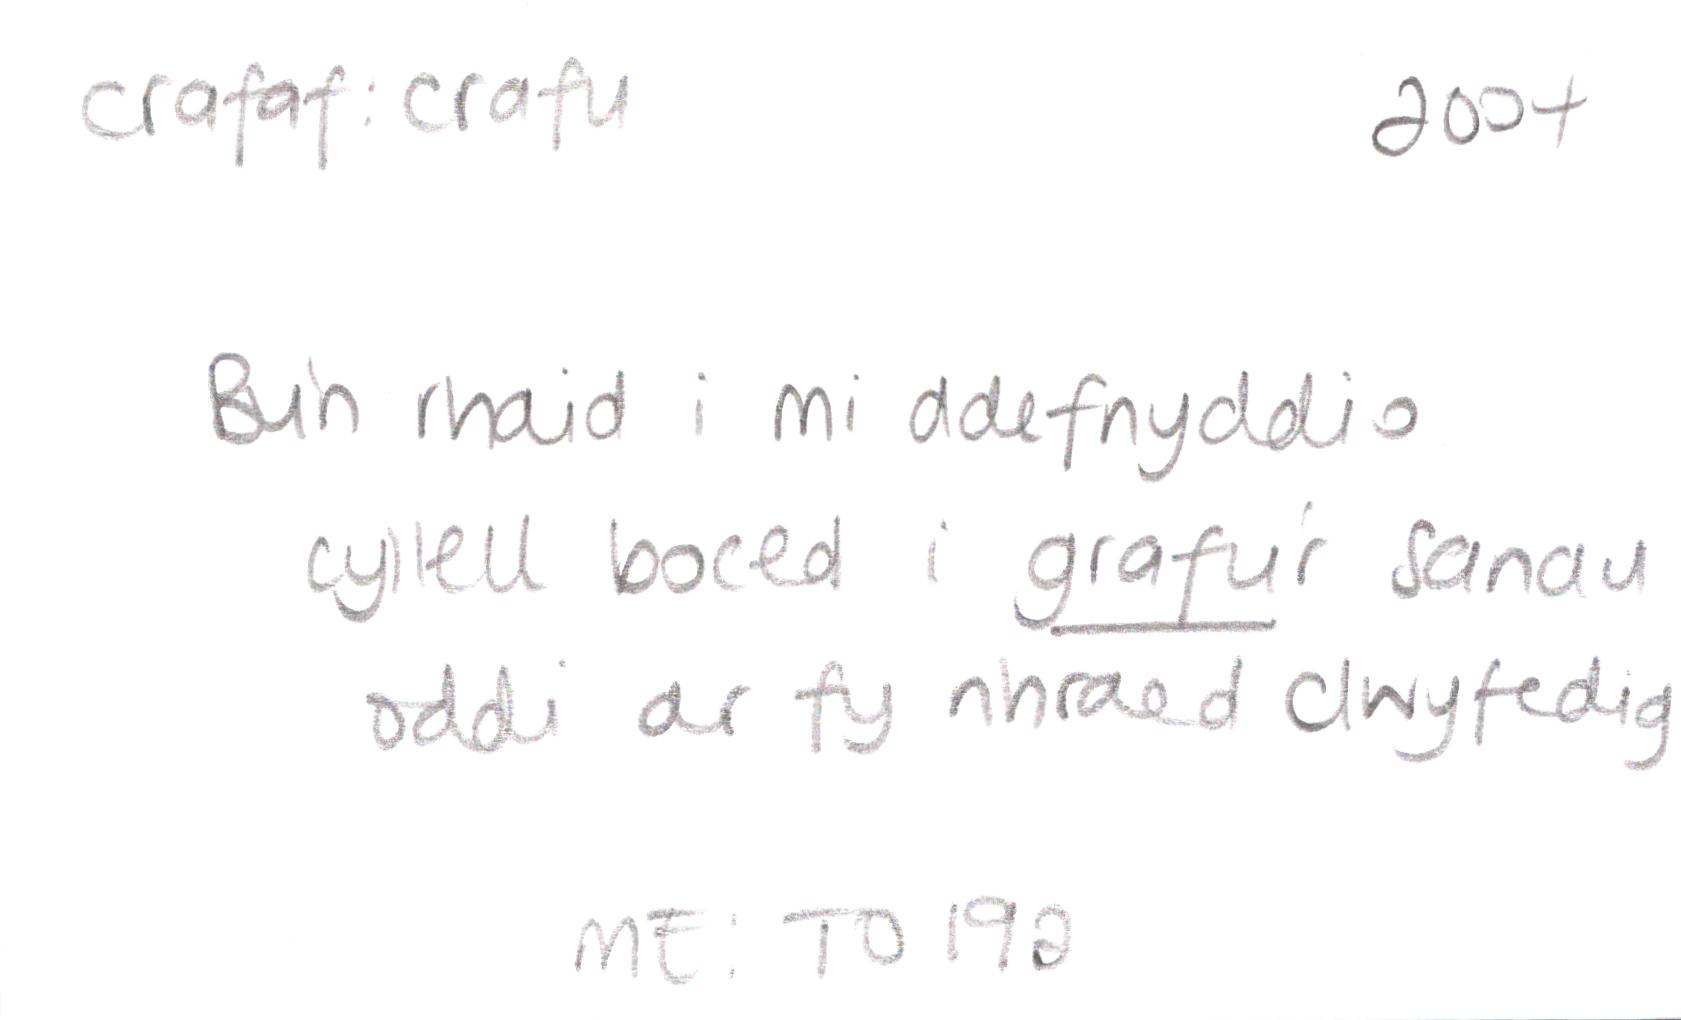 crafaf: crafu 2004
Bu'n rhaid i mi ddefnyddio
cyllell boced i grafu'r sanau
oddi ar fy nhraed clwyfedig
ME: TO 192